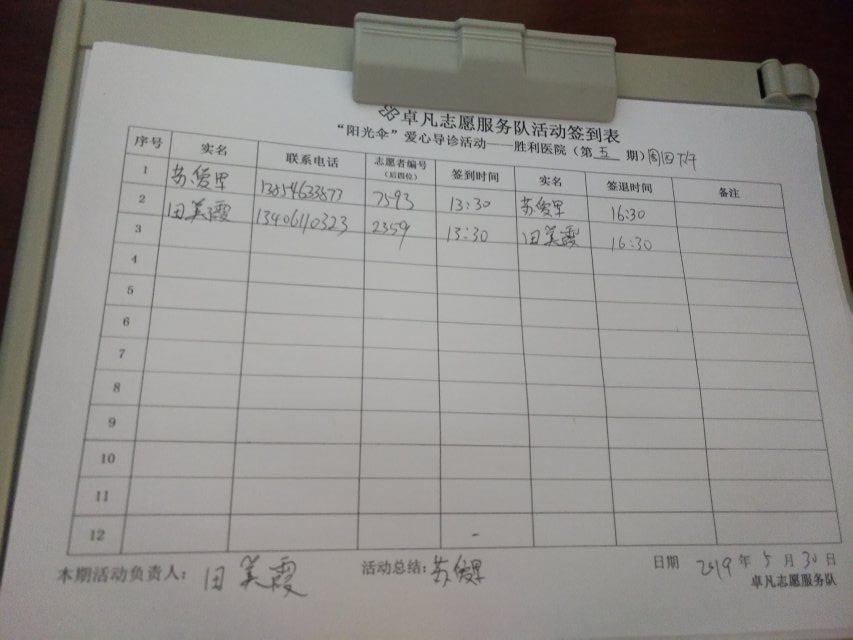 卓凡志愿服务队活动签到表
“阳光伞”爱心导诊活动——胜利医院（第 五 期）周四下午
序号 实名 联系电话 志愿者编号（后四位） 签到时间 实名 签退时间 备注
1 苏俊 7593 13:30 苏俊 16:30
2 田美霞 13406110323 2359 13:30 田美霞 16:30
3
4
5
6
7
8
9
10
11
12
本期活动负责人：田美霞 活动总结：苏俊 日期 2019 年 5 月 30 日
卓凡志愿服务队